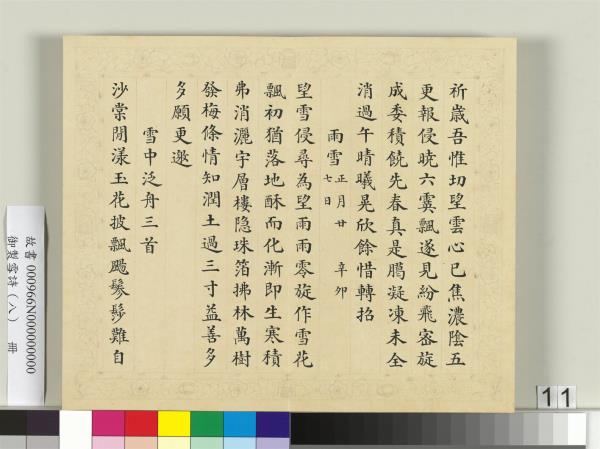 祈歲吾惟切望雲心已焦濃陰五
更報侵曉六霙飄遂見紛飛密旋
成委積饒先春真是臈凝凍未全
消過午晴曦晃欣餘惜轉招
雨雪 正月廿七日 辛卯
望雪侵尋為望雨雨零旋作雪花
飄初猶落地酥而化漸即生寒積
弗消灑宇層樓隐珠箔拂林萬樹
發梅條情知潤土過三寸益善多
多願更邀
雪中泛舟三首
沙棠閒漾玉花披飄颺鬖髿難自
故書 000966N000000000
御製雪詩(八) 冊
11